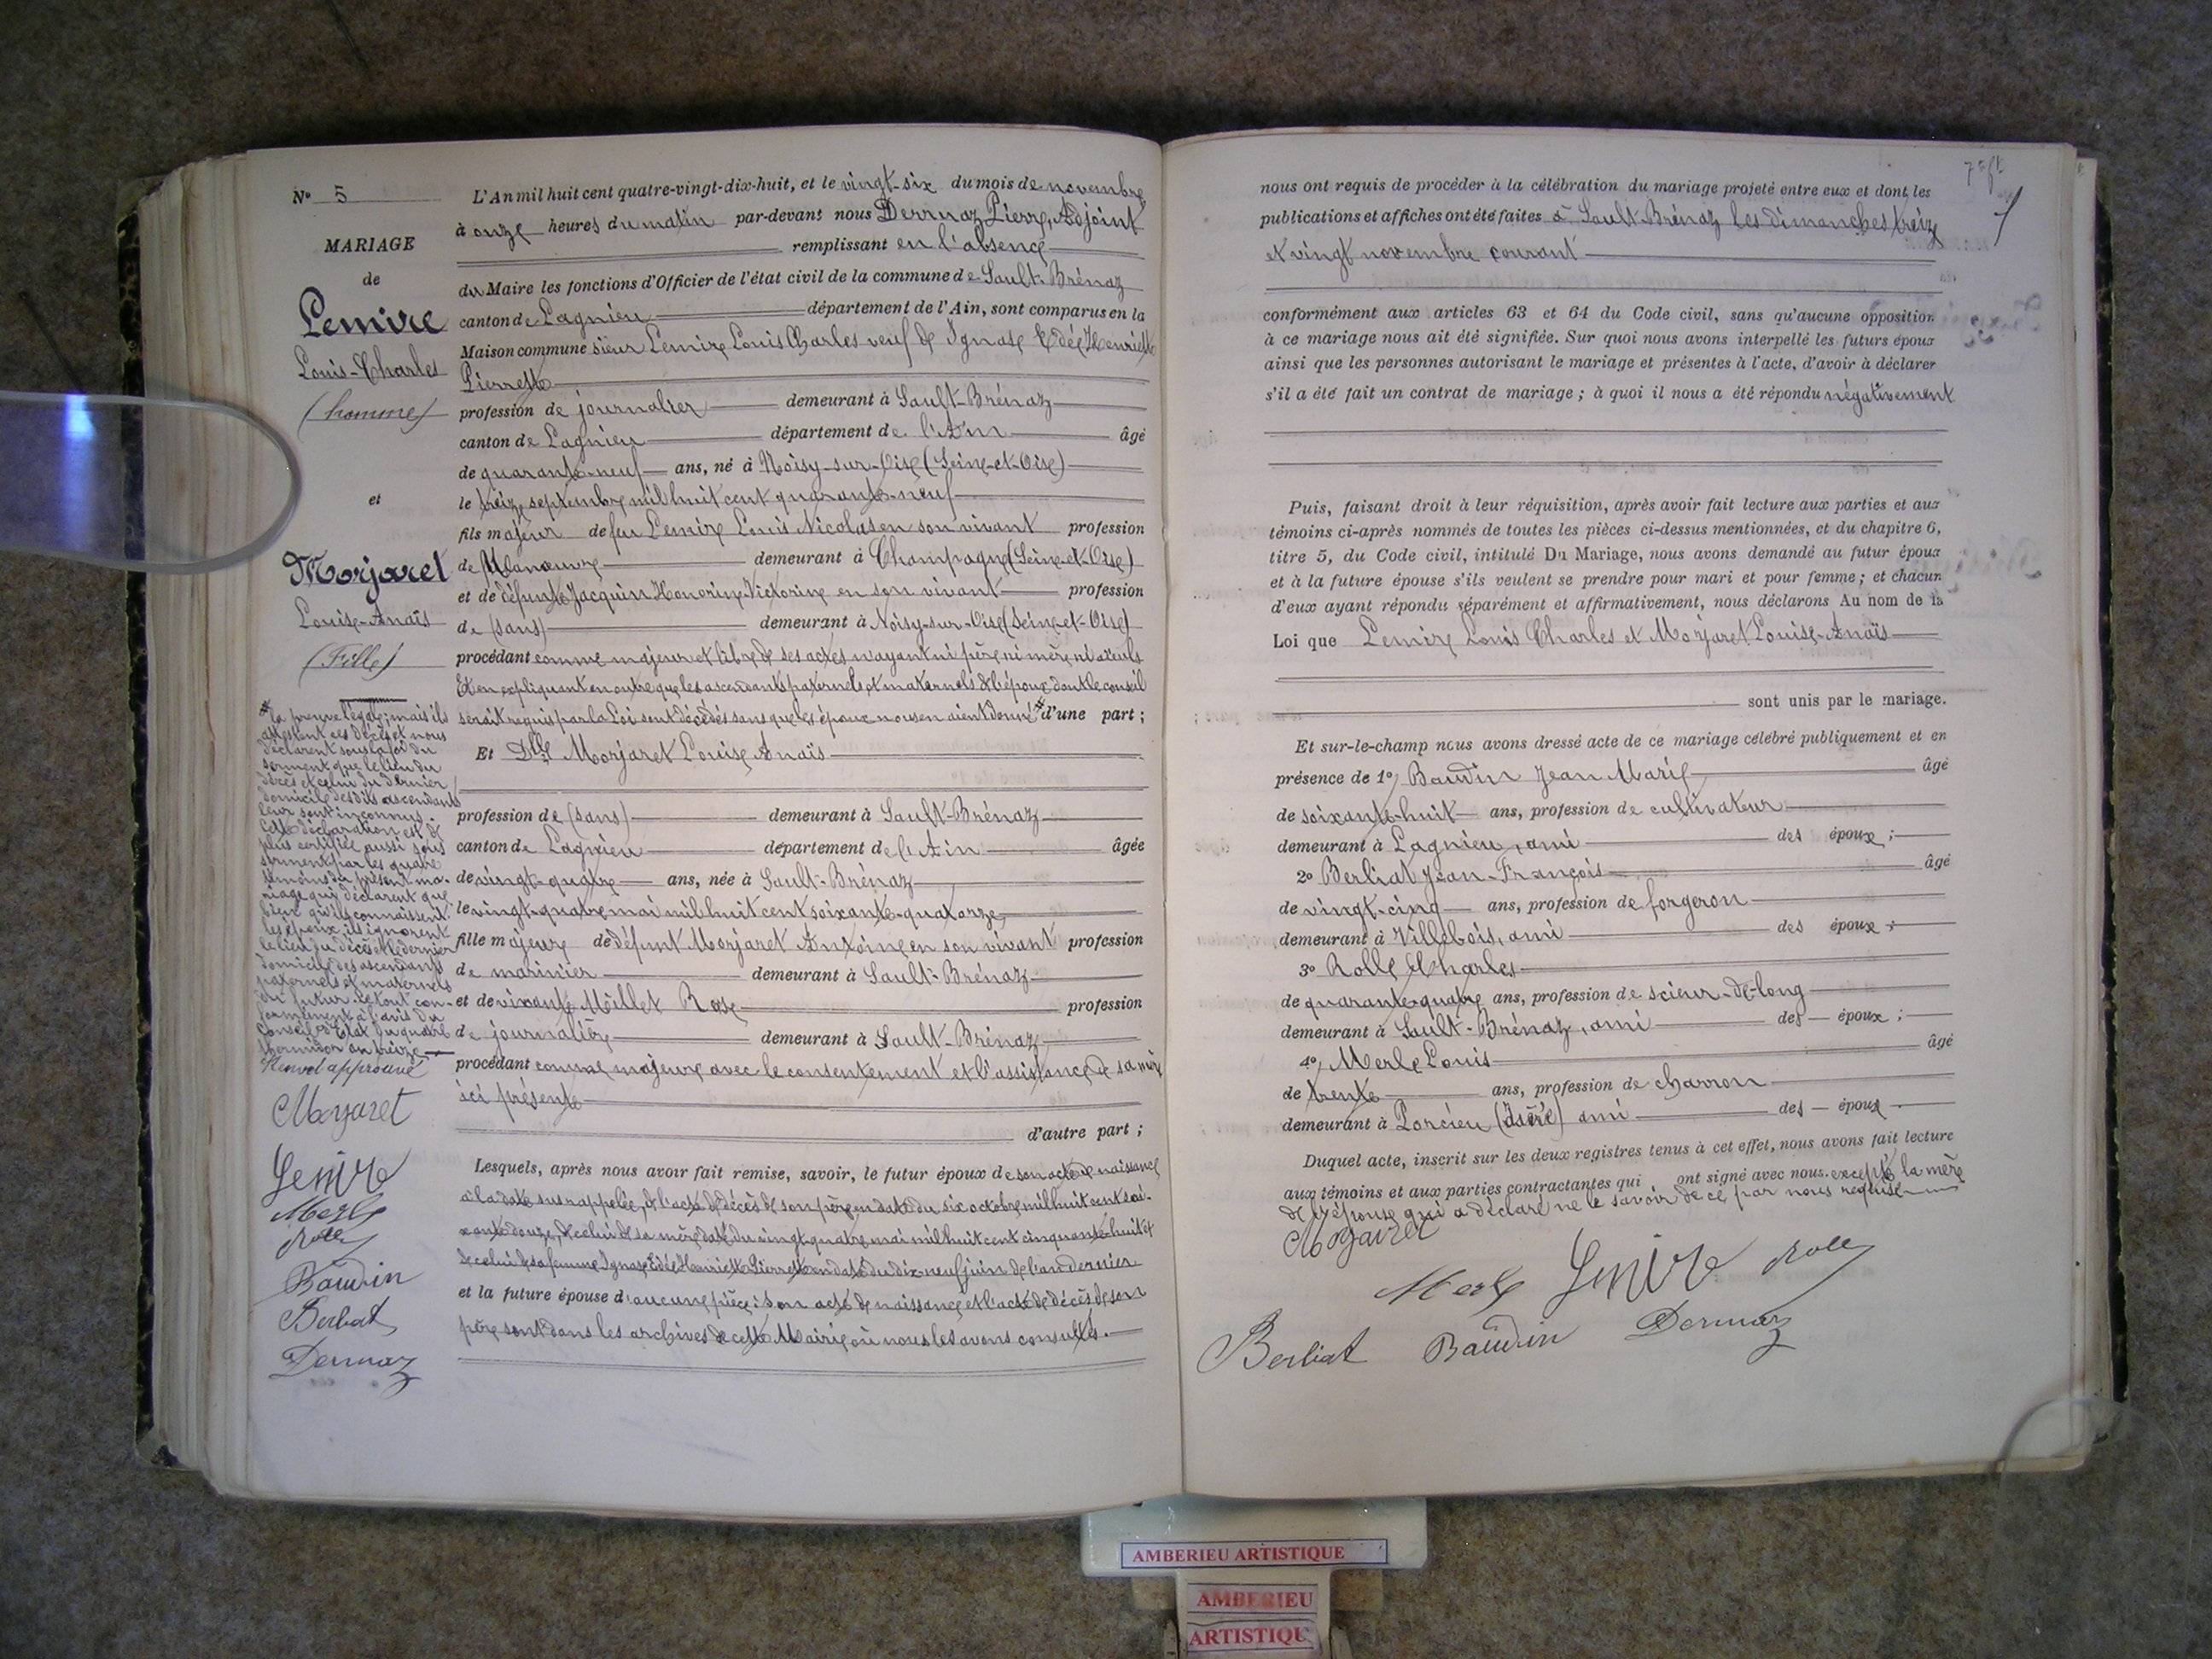 N° 5
MARIAGE
de
Lemire
Louis-Charles
(homme)
et
Morjaret
Louise-Anaïs
(Fille)
L'An mil huit cent quatre-vingt-dix-huit, et le vingt-six du mois de novembre
à onze heures du matin par-devant nous Dernaz Pierre, Adjoint
remplissant en l'absence
du Maire les fonctions d'Officier de l'état civil de la commune de Sault-Brénaz
canton de Lagnieu département de l'Ain, sont comparus en la
Maison commune sieur Lemire Louis Charles veuf de Ignase Edée Henriette
Pierrette
profession de journalier demeurant à Sault-Brénaz
canton de Lagnieu département de l'Ain âgé
de quarante-neuf ans, né à Noisy-sur-Oise (Seine-et-Oise)
le treize septembre mil huit cent quarante-neuf
fils majeur de feu Lemire Louis Nicolas en son vivant profession
de Manœuvre demeurant à Champagne (Seine-et-Oise)
et de défunte Jacquin Honorine Victorine en son vivant profession
de (sans) demeurant à Noisy-sur-Oise (Seine-et-Oise)
procédant comme majeur et libre de ses actes n'ayant ni père ni mère ni aïeuls
Et en expliquant en outre que les ascendants paternels et maternels de l'époux dont le conseil
serait requis par la Loi sont décédés sans que les époux nous en aient donné # d'une part ;
Et Dlle Morjaret Louise Anaïs
profession de (sans) demeurant à Sault-Brénaz
canton de Lagnieu département de l'Ain âgée
de vingt-quatre ans, née à Sault-Brénaz
le vingt-quatre mai mil huit cent soixante-quatorze
fille majeure de défunt Morjaret Antoine en son vivant profession
de marinier demeurant à Sault-Brénaz
et de vivante Millet Rose profession
de journalière demeurant à Sault-Brénaz
procédant comme majeure avec le consentement et l'assistance de sa mère
ici présente
d'autre part ;
Lesquels, après nous avoir fait remise, savoir, le futur époux de son acte de naissance
à la date susrappelée, de l'acte de décès de son père en date du six octobre mil huit cent soi-
xante douze, de celui de sa mère daté du vingt-quatre mai mil huit cent cinquante-huit et
de celui de sa femme Ignase Edée Henriette Pierrette en date du dix-neuf juin de l'an dernier
et la future épouse d'aucune pièce : Son acte de naissance et l'acte de décès de son
père sont dans les archives de cette Mairie où nous les avons consultés.
# la preuve légale; mais ils
attestent ces décès et nous
déclarent sous la foi du
serment que le lieu du
décès et celui du dernier
domicile desdits ascendants
leur sont inconnus.
Cette déclaration est de
plus certifiée aussi sous
serment par les quatre
témoins du présent ma-
riage qui déclarent que
bien qu'ils connaissent
les époux, ils ignorent
le lieu du décès et le dernier
domicile des ascendants
paternels et maternels
du futur. Le tout con-
formément à l'avis du
Conseil d'Etat du quatre
thermidor an treize
Renvoi approuvé
Morjaret
Lemire
Merle
Rolle
Baudin
Berliat
Dernaz
nous ont requis de procéder à la célébration du mariage projeté entre eux et dont les
publications et affiches ont été faites à Sault-Brénaz les dimanches treize
et vingt novembre courant
conformément aux articles 63 et 64 du Code civil, sans qu'aucune opposition
à ce mariage nous ait été signifiée. Sur quoi nous avons interpellé les futurs époux
ainsi que les personnes autorisant le mariage et présentes à l'acte, d'avoir à déclarer
s'il a été fait un contrat de mariage ; à quoi il nous a été répondu négativement
Puis, faisant droit à leur réquisition, après avoir fait lecture aux parties et aux
témoins ci-après nommés de toutes les pièces ci-dessus mentionnées, et du chapitre 6,
titre 5, du Code civil, intitulé Du Mariage, nous avons demandé au futur époux
et à la future épouse s'ils veulent se prendre pour mari et pour femme ; et chacun
d'eux ayant répondu séparément et affirmativement, nous déclarons Au nom de la
Loi que Lemire Louis Charles et Morjaret Louise-Anaïs
sont unis par le mariage.
Et sur-le-champ nous avons dressé acte de ce mariage célébré publiquement et en
présence de 1° Baudin Jean Marie âgé
de soixante-huit ans, profession de cultivateur
demeurant à Lagnieu, ami des époux ;
2° Berliat Jean-François âgé
de vingt-cinq ans, profession de forgeron
demeurant à Villebois, ami des époux ;
3° Rolle Charles
de quarante-quatre ans, profession de scieur-de-long
demeurant à Sault-Brénaz, ami des époux ;
4° Merle Louis âgé
de trente ans, profession de charron
demeurant à Porcieu (Isère) ami des époux.
Duquel acte, inscrit sur les deux registres tenus à cet effet, nous avons fait lecture
aux témoins et aux parties contractantes qui ont signé avec nous. excepté la mère
de l'épouse qui a déclaré ne le savoir de ce par nous requise
Morjaret
Merle Lemire Rolle
Berliat Baudin Dernaz
AMBERIEU ARTISTIQUE
AMBERIEU
ARTISTIQUE